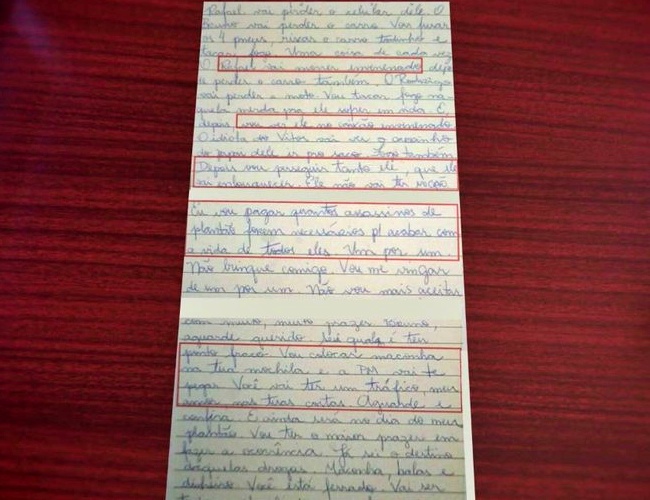 Rafael vai perder o celular dele. O
Bruno vai perder o carro. Vou furar
os 4 pneus, riscar o carro todinho e
tacar fogo. Uma coisa de cada vez
O Rafael vai morrer envenenado depo
e perder o carro também. O Rodrigo
vai perder a moto. Vou tacar fogo na
quela merda pra ele super em nda. E,
depois vou ver ele no caixão envenenado
O idiota do Vitor vai ver o
do papai dele ir pro saco. Fogo também
Depois vou perseguir tanto ele, que ele
vai enlouquecer. Ele não vai ter
Eu vou pagar quantos assassinos de
plantão forem necessários p/ acabar com
a vida de todos eles. Um por um.
Não brinque comigo. Vou me vingar
de um por um. Não vou mais aceitar
com muito, muito prazer. Bruno,
aguarde querido. Sei qual é teu
ponto fraco. Vou colocar maconha
na tua mochila e a PM vai te
pegar. Você vai ter um tráfico, meu
amor nas tuas costas. Aguarde e
confira. E ainda será no dia do meu
plantão. Vou ter o maior prazer em
fazer a ocorrência. Já sei o destino
daquelas drogas. Maconha, balas e
dinheiro. Você está ferrado. Vai ser